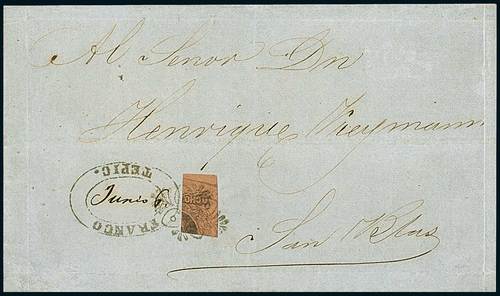 Al Senor Dn
Henrique Freymann
San Blas
FRANCO
Junio 6
TEPIC.
OCHO